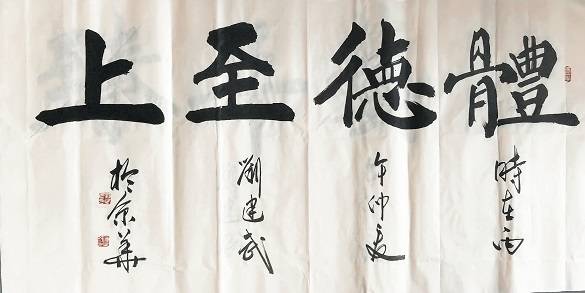 體德至上
時在丙
午仲夏
劉建武
於京華